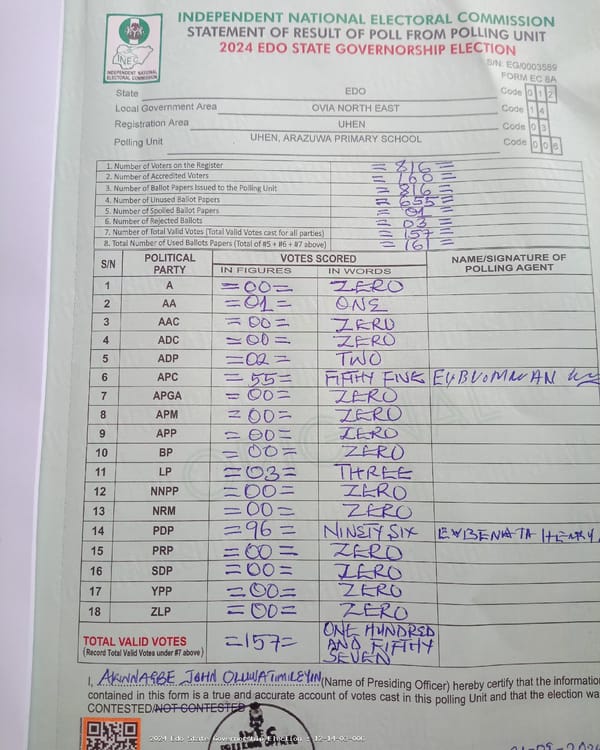 INDEPENDENT NATIONAL ELECTORAL COMMISSION
STATEMENT OF RESULT OF POLL FROM POLLING UNIT
2024 EDO STATE GOVERNORSHIP ELECTION
INEC
INDEPENDENT NATIONAL
ELECTORAL COMMISSION
S/N: EG/0003589
FORM EC 8A
State EDO Code 0 1 2
Local Government Area OVIA NORTH EAST Code 1 4
Registration Area UHEN Code 0 3
Polling Unit UHEN, ARAZUWA PRIMARY SCHOOL Code 0 0 6
1. Number of Voters on the Register =816=
2. Number of Accredited Voters =160=
3. Number of Ballot Papers Issued to the Polling Unit =816=
4. Number of Unused Ballot Papers =655=
5. Number of Spoiled Ballot Papers =01=
6. Number of Rejected Ballots =03=
7. Number of Total Valid Votes (Total Valid Votes cast for all parties) =157=
8. Total Number of Used Ballots Papers (Total of #5 + #6 + #7 above) =161=
S/N POLITICAL PARTY VOTES SCORED NAME/SIGNATURE OF POLLING AGENT
IN FIGURES IN WORDS
1 A =00= ZERO
2 AA =01= ONE
3 AAC =00= ZERO
4 ADC =00= ZERO
5 ADP =02= TWO
6 APC =55= FIFTHY FIVE
7 APGA =00= ZERO
8 APM =00= ZERO
9 APP =00= ZERO
10 BP =00= ZERO
11 LP =03= THREE
12 NNPP =00= ZERO
13 NRM =00= ZERO
14 PDP =96= NINETY SIX HENRY
15 PRP =00= ZERO
16 SDP =00= ZERO
17 YPP =00= ZERO
18 ZLP =00= ZERO
TOTAL VALID VOTES =157= ONE HUNDRED
(Record Total Valid Votes under #7 above) AND FIFTHY
SEVEN
I, AKINNAGBE JOHN OLUWATIMILEYIN (Name of Presiding Officer) hereby certify that the information
contained in this form is a true and accurate account of votes cast in this polling Unit and that the election wa
CONTESTED/NOT CONTESTED
2024 Edo State Governorship Election : 12_14_03_006